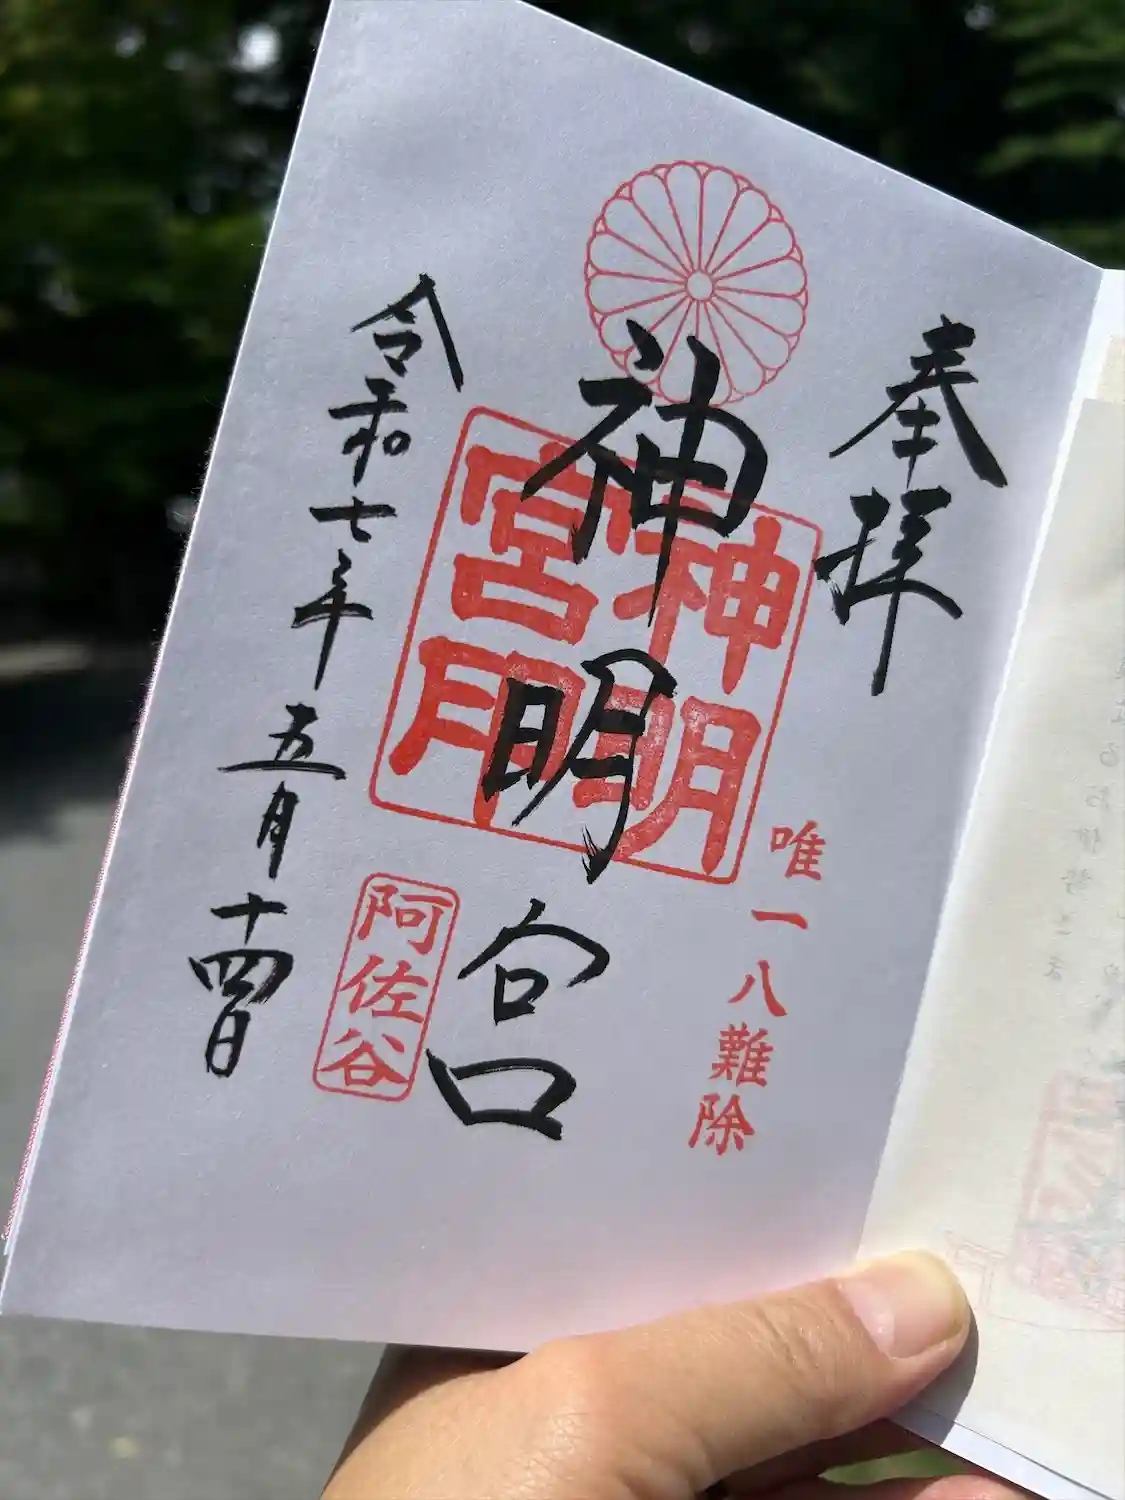 奉拝
唯一八難除
神明宮
神明宮印
阿佐谷
令和七年五月十四日